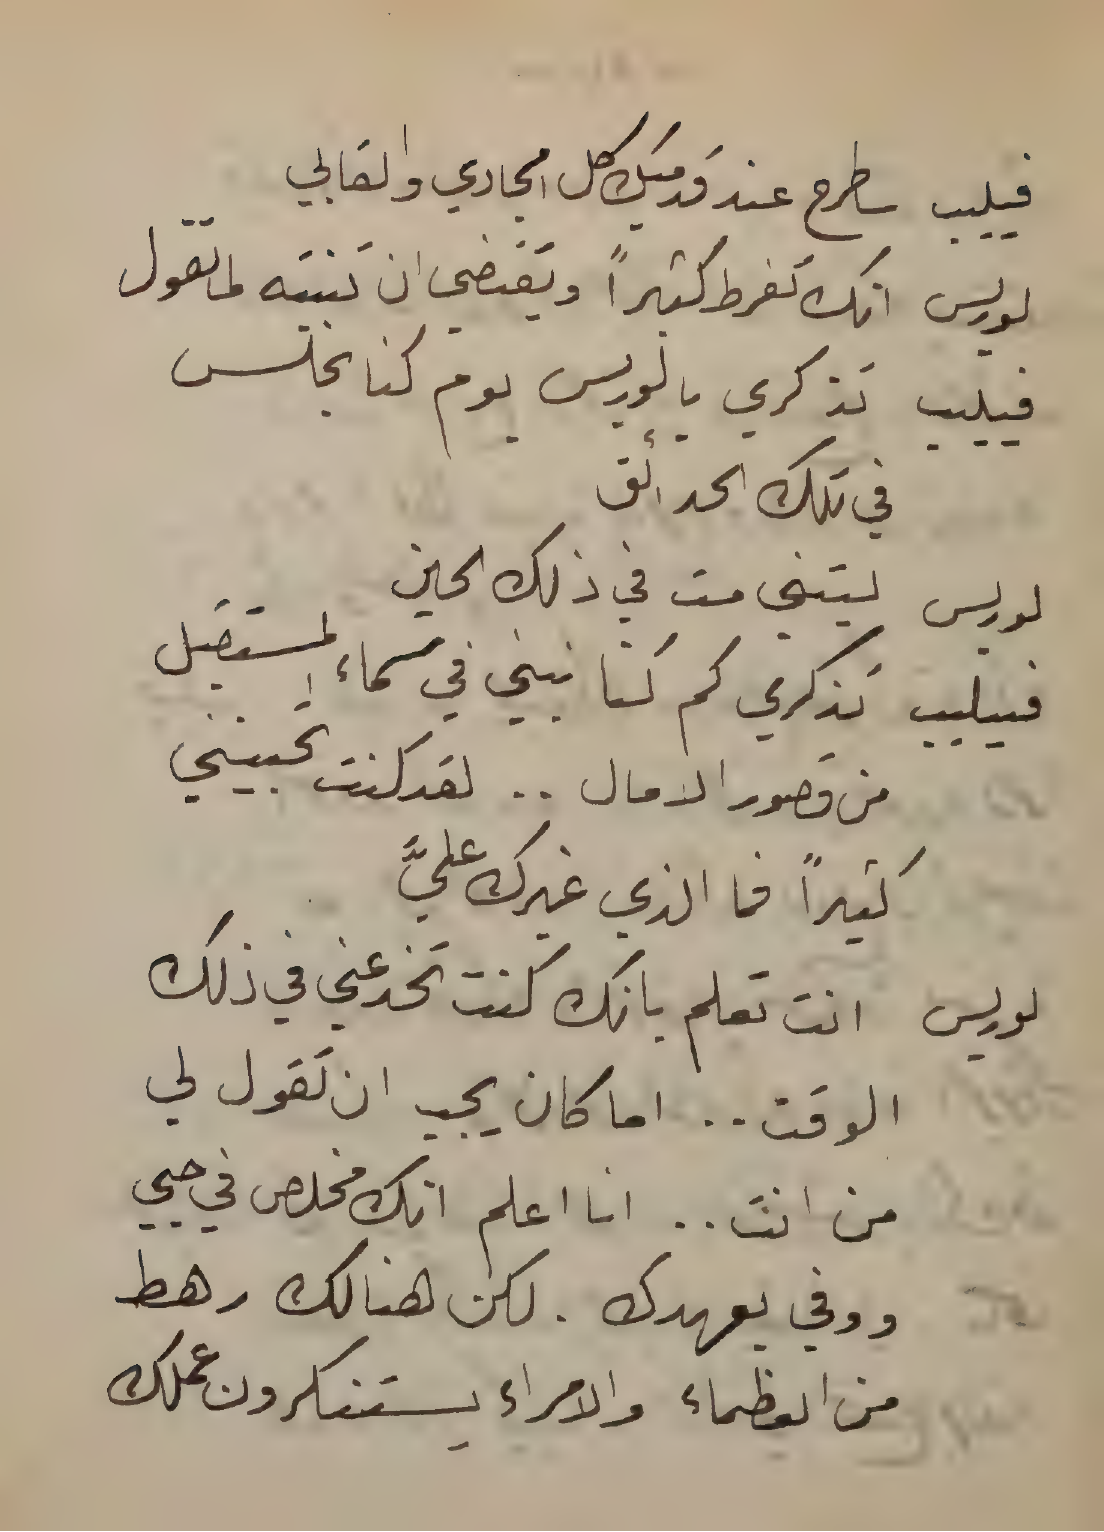 فيليب ساطرح عند قدميك كل امجادي والقابي
لوريس انك تفرط كثيراً ويقتضي ان تنتبه لما تقول
فيليب تذكري يا لوريس يوم كنا نجلس
في تلك الحدائق
لوريس ليتني مت في ذلك الحين
فيليب تذكري كم كنا نبني في سماء المستقبل
من قصور الامال .. لقد كنت تحبينني
كثيراً فما الذي غيرك عليَّ
لوريس انت تعلم بانك كنت تخدعني في ذلك
الوقت .. اما كان يجب ان تقول لي
من انت .. انا اعلم انك مخلص في حبي
ووفي بعهدك . لكن هنالك رهط
من العظماء والامراء يستنكرون عملك